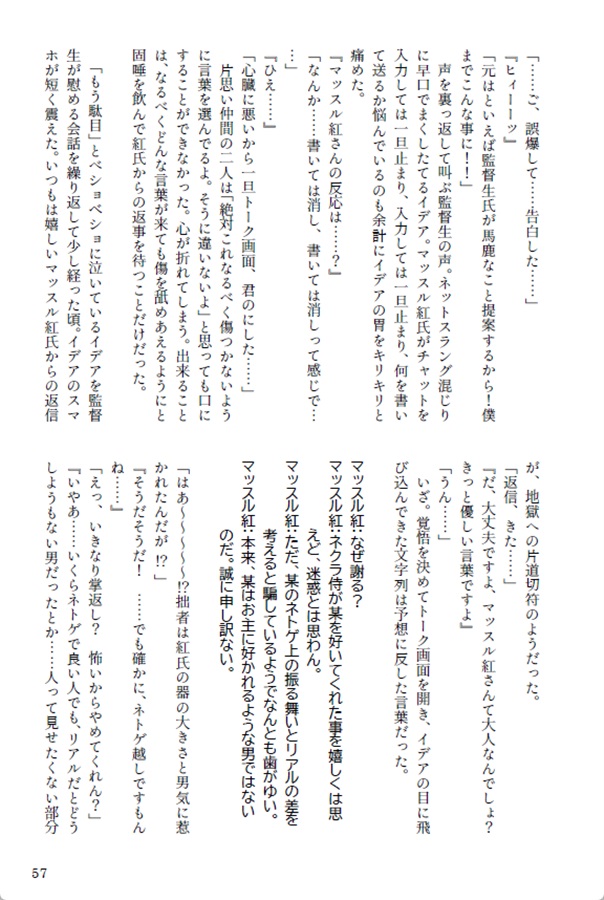 「……ご、誤爆して……告白した……」
『ヒィーーッ』
「元はといえば監督生氏が馬鹿なこと提案するから！僕
までこんな事に！！」
　声を裏っ返して叫ぶ監督生の声。ネットスラング混じり
に早口でまくしたてるイデア。マッスル紅氏がチャットを
入力しては一旦止まり、入力しては一旦止まり、何を書い
て送るか悩んでいるのも余計にイデアの胃をキリキリと
痛めた。
『マッスル紅さんの反応は……？』
「なんか……書いては消し、書いては消しって感じで…
…」
『ひえ……』
「心臓に悪いから一旦トーク画面、君のにした……」
　片思い仲間の二人は「絶対これなるべく傷つかないよう
に言葉を選んでるよ。そうに違いないよ」と思っても口に
することができなかった。心が折れてしまう。出来ること
は、なるべくどんな言葉が来ても傷を舐めあえるようにと
固唾を飲んで紅氏からの返事を待つことだけだった。
「もう駄目」とベショベショに泣いているイデアを監督
生が慰める会話を繰り返して少し経った頃。イデアのスマ
ホが短く震えた。いつもは嬉しいマッスル紅氏からの返信
が、地獄への片道切符のようだった。
「返信、きた……」
『だ、大丈夫ですよ、マッスル紅さんて大人なんでしょ？
きっと優しい言葉ですよ』
「うん……」
　いざ。覚悟を決めてトーク画面を開き、イデアの目に飛
び込んできた文字列は予想に反した言葉だった。
マッスル紅：なぜ謝る？
マッスル紅：ネクラ侍が某を好いてくれた事を嬉しくは思
えど、迷惑とは思わん。
マッスル紅：ただ、某のネトゲ上の振る舞いとリアルの差を
考えると騙しているようでなんとも歯がゆい。
マッスル紅：本来、某はお主に好かれるような男ではない
のだ。誠に申し訳ない。
「はあ〜〜〜〜〜!?拙者は紅氏の器の大きさと男気に惹
かれたんだが!?」
『そうだそうだ！　……でも確かに、ネトゲ越しですもん
ね……』
「えっ、いきなり掌返し？　怖いからやめてくれん？」
『いやあ……いくらネトゲで良い人でも、リアルだとどう
しようもない男だったとか……人って見せたくない部分
57